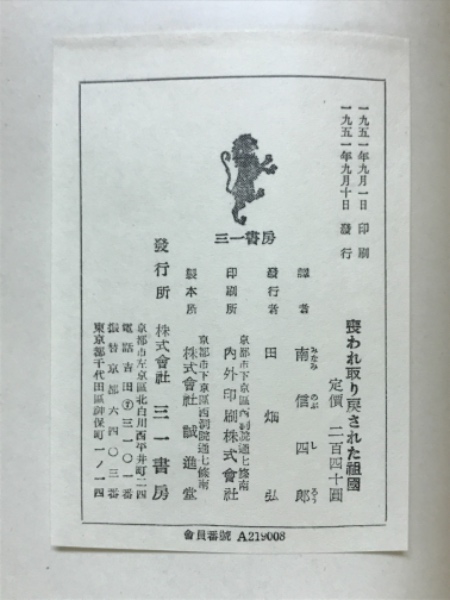 一九五一年九月一日 印刷
一九五一年九月十日 發行
三一書房
喪われ取り戻された祖國
定價 二百四十圓
譯者 南信四郎
みなみ のぶ し ろう
發行者 田畑弘
京都市下京區西洞院通七條南
印刷所 內外印刷株式會社
京都市下京區西洞院通七條南
製本所 株式會社 誠進堂
發行所 株式會社 三一書房
京都市左京區北白川西平井町二四
電話吉田⑦三一〇一番
振替京都六四〇三番
東京都千代田區神保町一ノ一四
會員番號 A219008